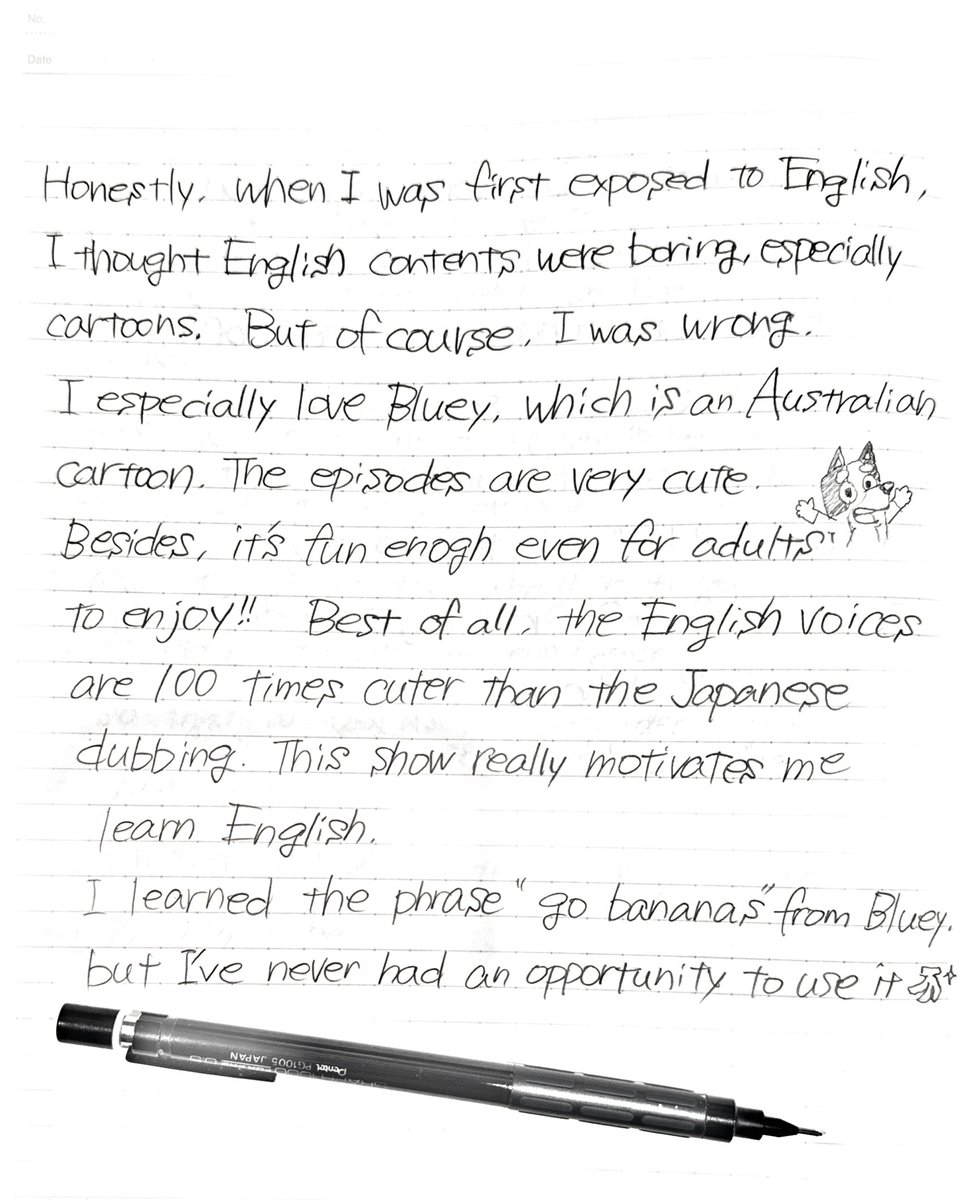 No.
Date
Honestly, when I was first exposed to English,
I thought English contents were boring, especially
cartoons. But of course, I was wrong.
I especially love Bluey, which is an Australian
cartoon. The episodes are very cute.
Besides, it's fun enogh even for adults
to enjoy!! Best of all, the English voices
are 100 times cuter than the Japanese
dubbing. This show really motivates me
learn English.
I learned the phrase "go bananas" from Bluey,
but I've never had an opportunity to use it
Pentel PG1005 JAPAN